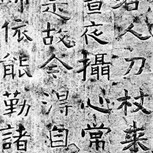 人刀杖来
夜攝心常
故今得自
依能勤諸